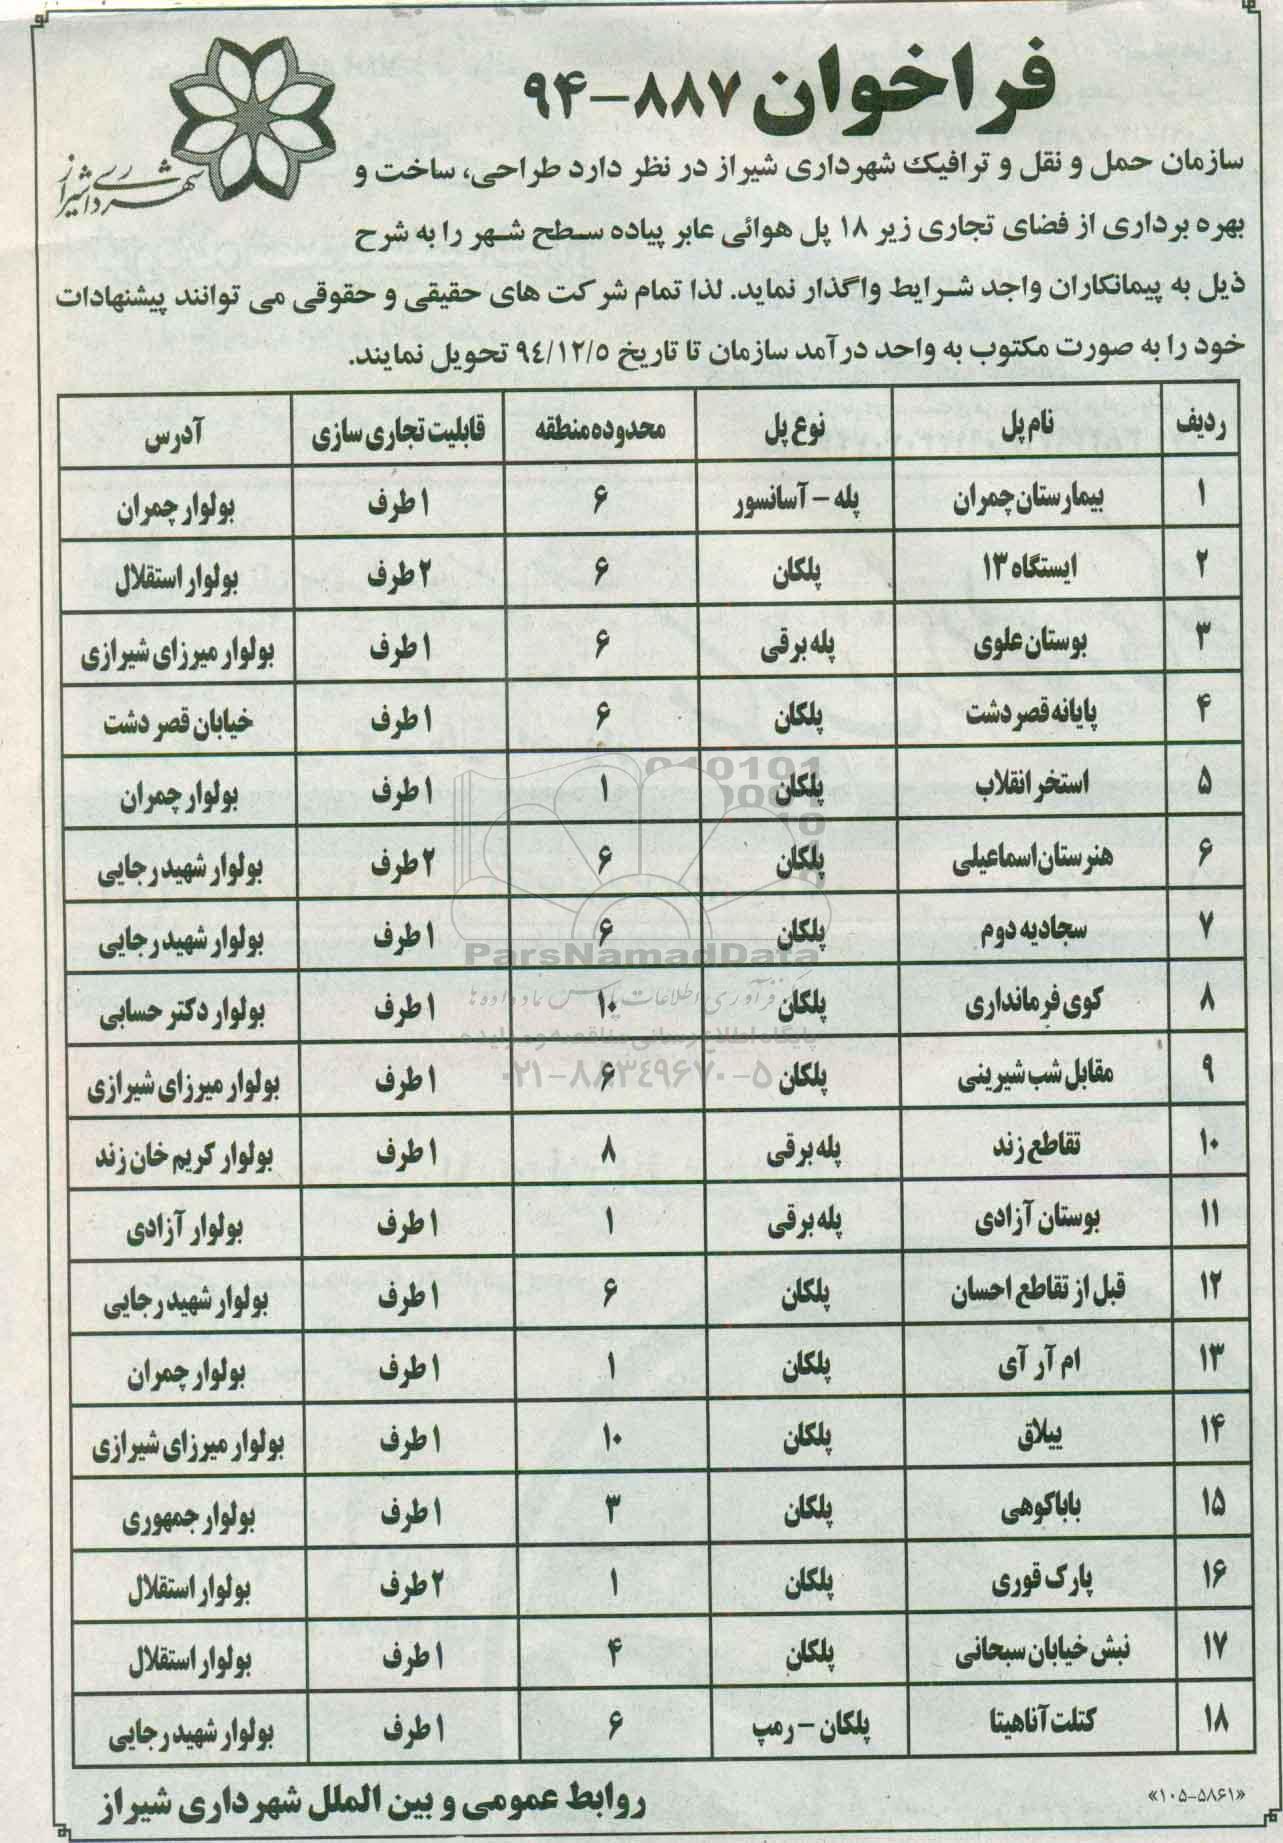 فراخوان ۸۸۷-۹۴
شهرداری شیراز
سازمان حمل و نقل و ترافیک شهرداری شیراز در نظر دارد طراحی، ساخت و
بهره برداری از فضای تجاری زیر ۱۸ پل هوائی عابر پیاده سطح شهر را به شرح
ذیل به پیمانکاران واجد شرایط واگذار نماید. لذا تمام شرکت های حقیقی و حقوقی می توانند پیشنهادات
خود را به صورت مکتوب به واحد درآمد سازمان تا تاریخ ۹٤/۱۲/۵ تحویل نمایند.
ردیف نام پل نوع پل محدوده منطقه قابلیت تجاری سازی آدرس
۱ بیمارستان چمران پله - آسانسور ۶ ۱ طرف بولوار چمران
۲ ایستگاه ۱۳ پلکان ۶ ۲ طرف بولوار استقلال
۳ بوستان علوی پله برقی ۶ ۱ طرف بولوار میرزای شیرازی
۴ پایانه قصر دشت پلکان ۶ ۱ طرف خیابان قصر دشت
۵ استخر انقلاب پلکان ۱ ۱ طرف بولوار چمران
۶ هنرستان اسماعیلی پلکان ۶ ۲ طرف بولوار شهید رجایی
۷ سجادیه دوم پلکان ۶ ۱ طرف بولوار شهید رجایی
۸ کوی فرمانداری پلکان ۱۰ ۱ طرف بولوار دکتر حسابی
۹ مقابل شب شیرینی پلکان ۶ ۱ طرف بولوار میرزای شیرازی
۱۰ تقاطع زند پله برقی ۸ ۱ طرف بولوار کریم خان زند
۱۱ بوستان آزادی پله برقی ۱ ۱ طرف بولوار آزادی
۱۲ قبل از تقاطع احسان پلکان ۶ ۱ طرف بولوار شهید رجایی
۱۳ ام آر آی پلکان ۱ ۱ طرف بولوار چمران
۱۴ ییلاق پلکان ۱۰ ۱ طرف بولوار میرزای شیرازی
۱۵ باباکوهی پلکان ۳ ۱ طرف بولوار جمهوری
۱۶ پارک قوری پلکان ۱ ۲ طرف بولوار استقلال
۱۷ نبش خیابان سبحانی پلکان ۴ ۱ طرف بولوار استقلال
۱۸ کتلت آناهیتا پلکان - رمپ ۶ ۱ طرف بولوار شهید رجایی
ParsNamadData
مرکز فرآوری اطلاعات پارس نماد داده ها
پایگاه اطلاع رسانی مناقصه و مزایده
۰۲۱-۸۸۳۴۹۶۷۰-۵
«۱۰۵-۵۸۶۱»
روابط عمومی و بین الملل شهرداری شیراز